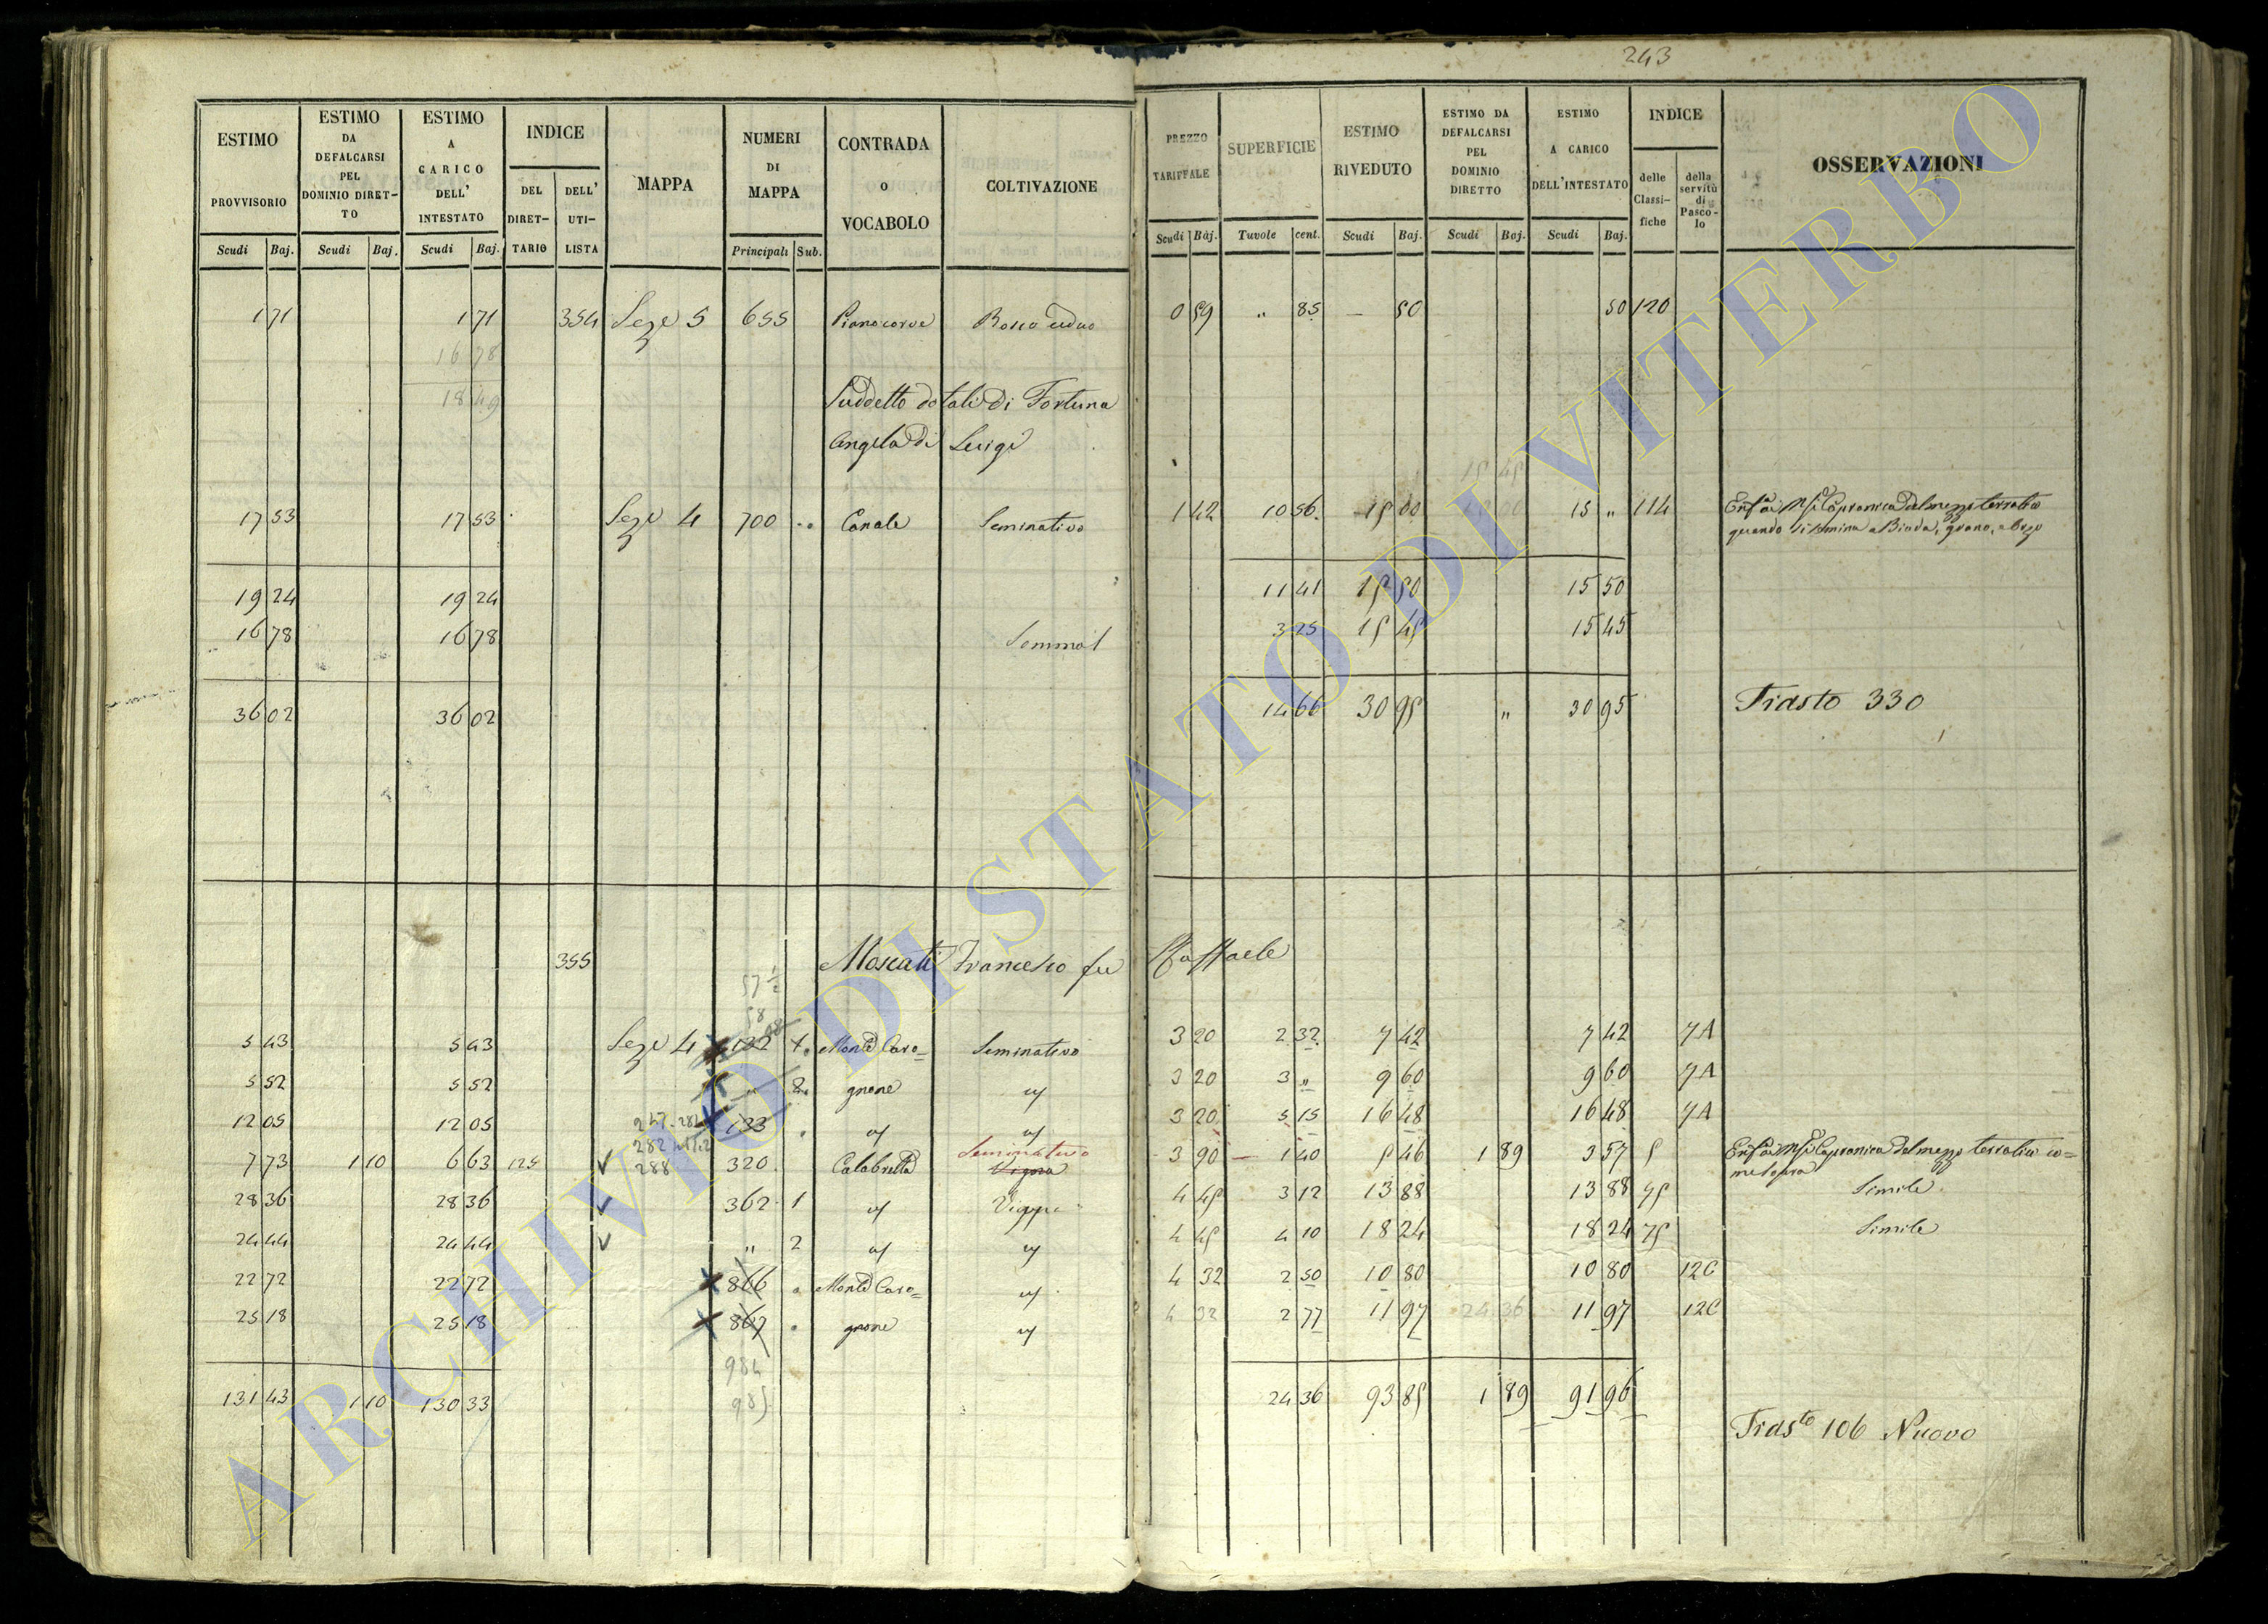 243
ESTIMO PROVVISORIO | ESTIMO DA DEFALCARSI PEL DOMINIO DIRET-TO | ESTIMO A CARICO DELL' INTESTATO | INDICE DEL DIRET-TARIO | DELL' UTI-LISTA | MAPPA | NUMERI DI MAPPA | CONTRADA O VOCABOLO | COLTIVAZIONE | PREZZO TARIFFALE | SUPERFICIE | ESTIMO RIVEDUTO | ESTIMO DA DEFALCARSI PEL DOMINIO DIRETTO | ESTIMO A CARICO DELL'INTESTATO | INDICE delle Classi-fiche | della servitù di Pasco-lo | OSSERVAZIONI
Scudi Baj. | Scudi Baj. | Scudi Baj. | Principali Sub. | Scudi Baj. | Tavole cent. | Scudi Baj. | Scudi Baj. | Scudi Baj.
1 71 | 1 71 | 354 | Seze 5 | 655 | Pianocorve | Bosco ceduo | 0 59 | " 85 | — 50 | 50 | 120
16 78
18 49
Suddetto dotali di Fortuna
Angela di Luigi
15 45
17 53 | 17 53 | Seze 4 | 700 | Canale | Seminativo | 1 42 | 10 56 | 15 00 | 15 " | 114 | del mezzo terratico
quando si semina a Biada, grano, e orzo
19 24 | 19 24 | 11 41 | 15 50 | 15 50
16 78 | 16 78 | 3 25 | 15 45 | 15 45
36 02 | 36 02 | 14 66 | 30 95 | " | 30 95 | Trasto 330
355 | Moscati Francesco fu Raffaele
57 1/2
58
5 43 | 5 43 | Seze 4 | 132 | 1 | Monte Caro= | Seminativo | 3 20 | 2 32 | 7 42 | 7 42 | 7A
5 52 | 5 52 | " | 2 | gnone | " | 3 20 | 3 " | 9 60 | 9 60 | 7A
12 05 | 12 05 | 133 | " | " | 3 20 | 5 15 | 16 48 | 16 48 | 7A
7 73 | 1 10 | 6 63 | 125 | 288 | 320 | Calabretta | Seminativo Vigna | 3 90 | 1 40 | 5 46 | 1 89 | 3 57 | 5 | del mezzo terratico co=
me sopra
28 36 | 28 36 | 362 | 1 | " | Vigna | 4 45 | 3 12 | 13 88 | 13 88 | 75 | Simile
24 44 | 24 44 | " | 2 | " | " | 4 45 | 4 10 | 18 24 | 18 24 | 75 | Simile
22 72 | 22 72 | 866 | Monte Caro= | " | 4 32 | 2 50 | 10 80 | 10 80 | 12C
25 18 | 25 18 | 867 | gnone | " | 4 32 | 2 77 | 11 97 | 24 36 | 11 97 | 12C
984
985
131 43 | 1 10 | 130 33 | 24 36 | 93 85 | 1 89 | 91 96
Trasto 106 Nuovo
ARCHIVIO DI STATO DI VITERBO